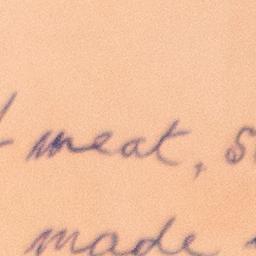 meat,
made